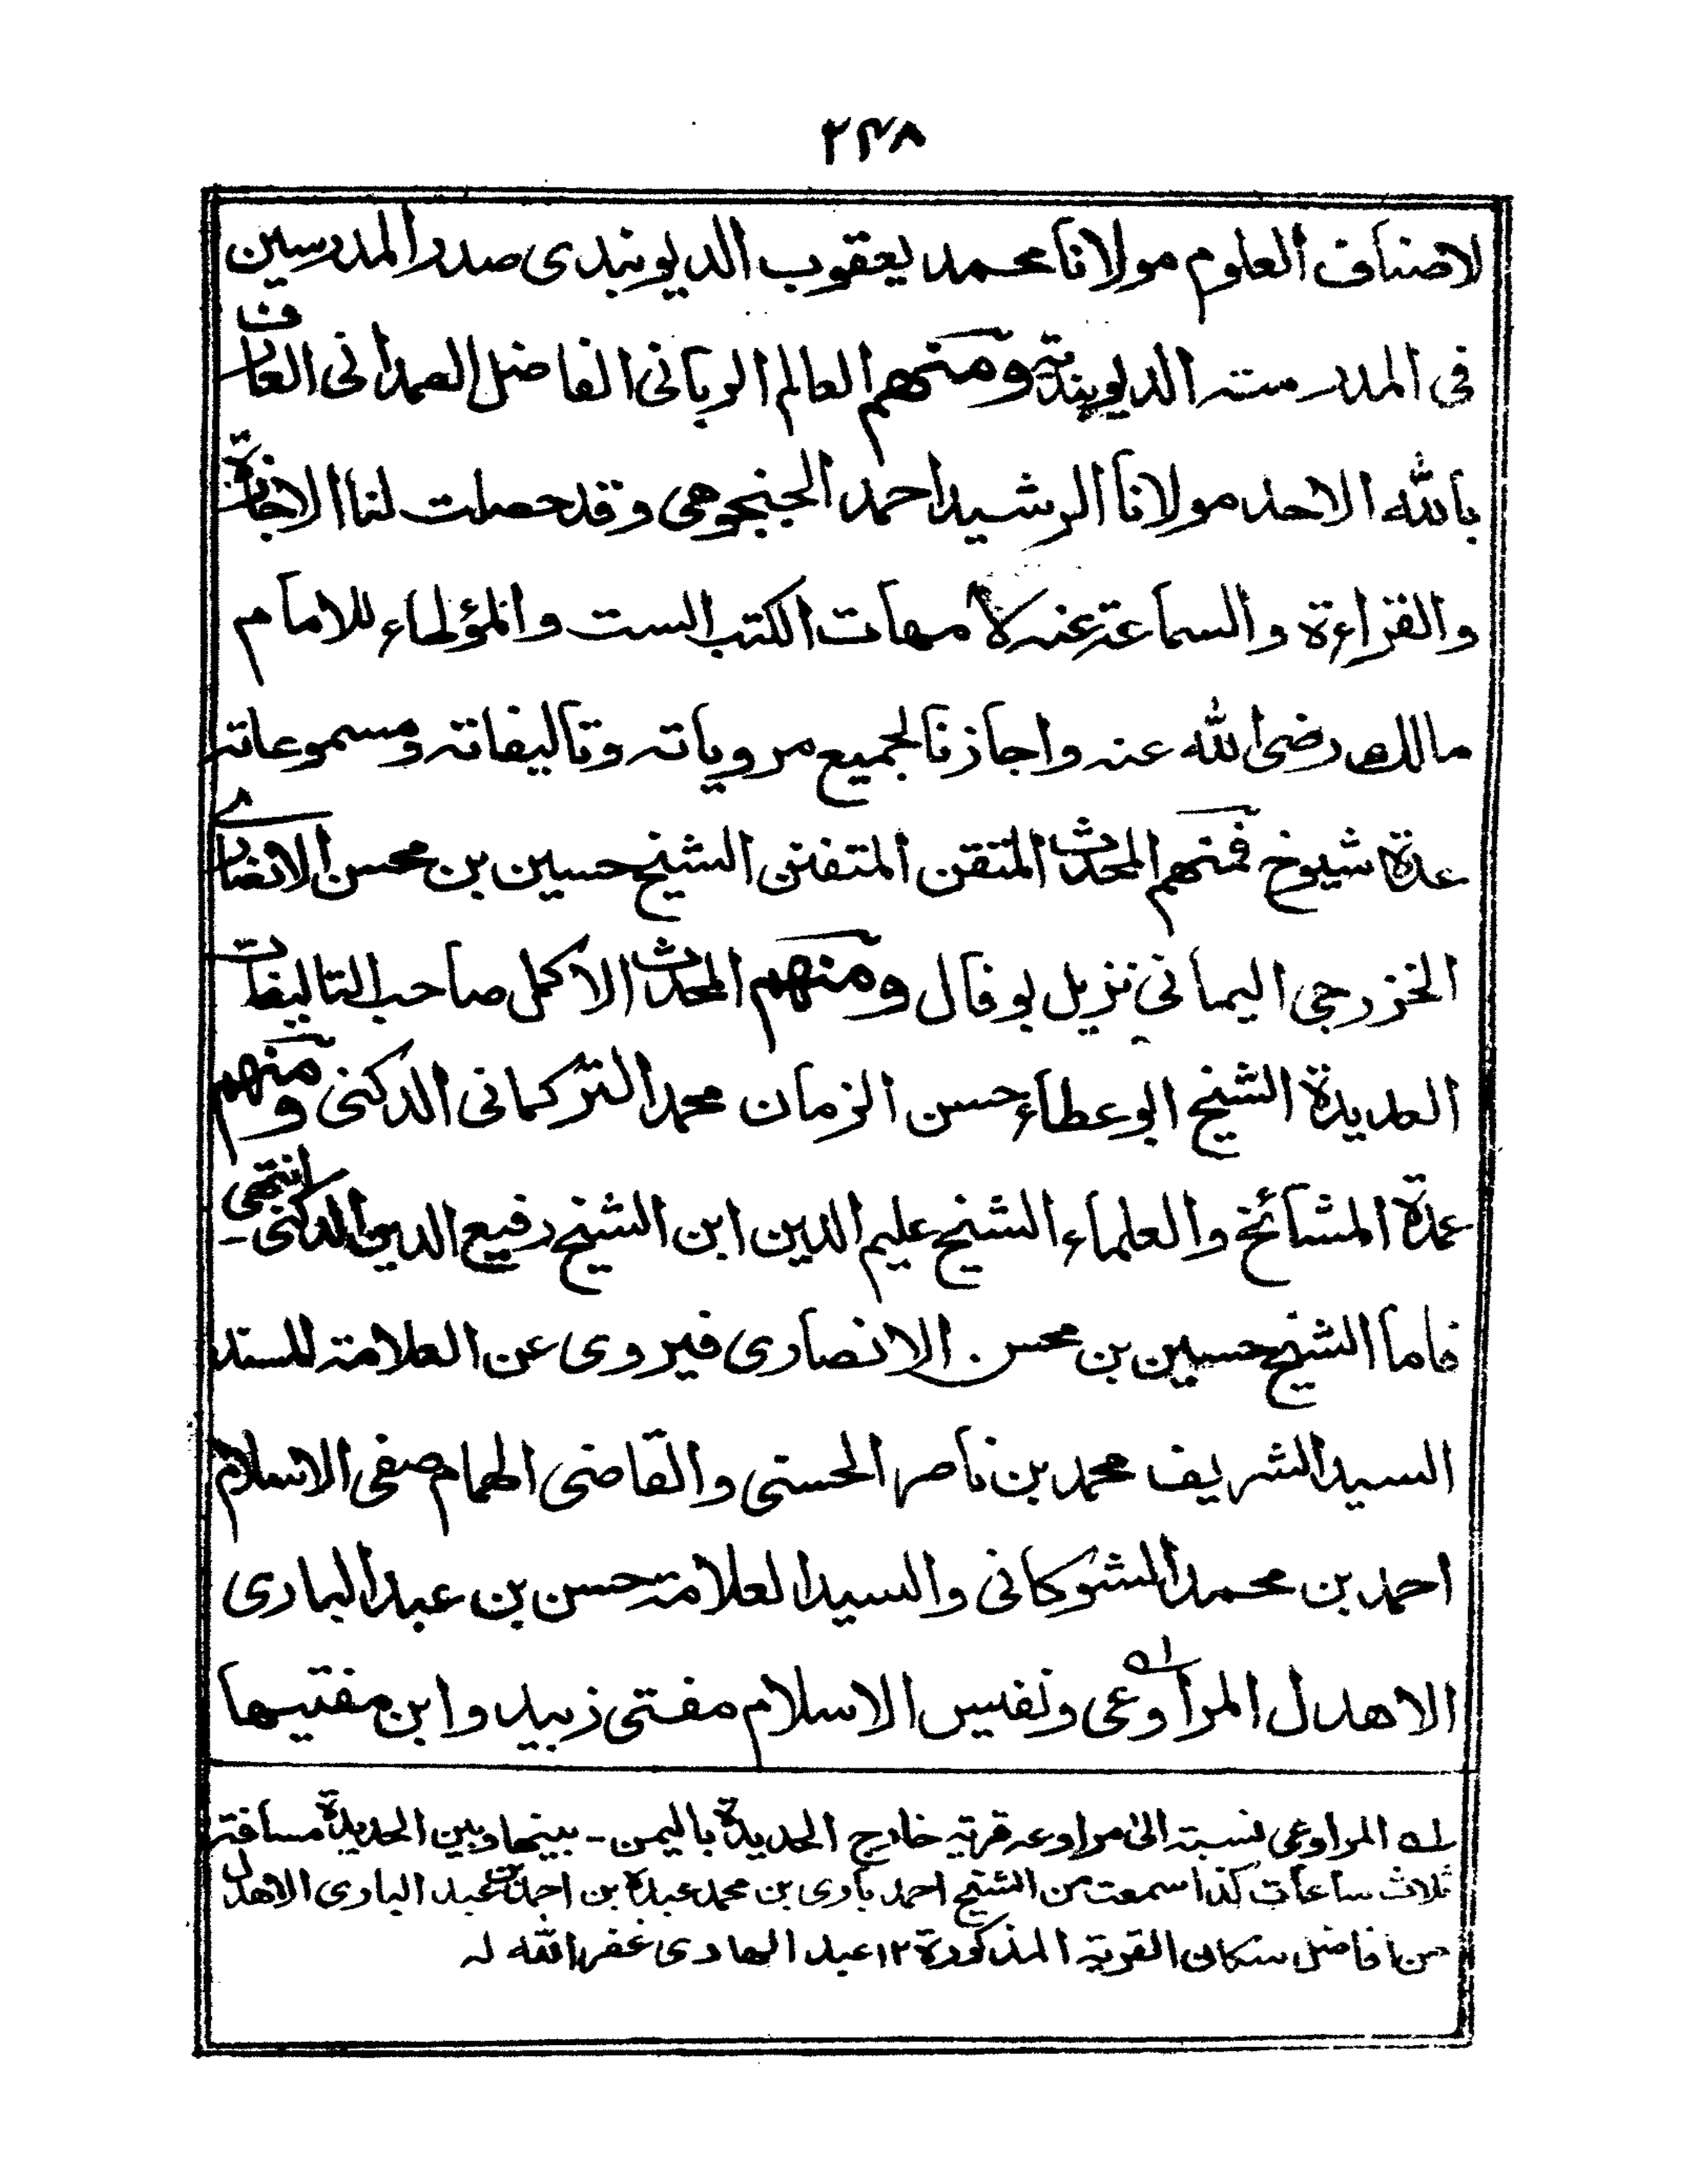 ۲۴۸
لاصناف العلوم مولانا محمد يعقوب الديوبندى صدر المدرسين
فى المدرسته الديوبنديته ومنهم العالم الربانى الفاضل الصمدانى العارف
بالله الاحد مولانا الرشيد احمد الجنجوهى وقد حصلت لنا الاجازة
والقراءة والسماعة عنه لامهات الكتب الست والمؤطاء للامام
مالك رضى الله عنه واجازنا لجميع مروياته وتاليفاته ومسموعاته
عدة شيوخ فمنهم المحدث المتقن المتفنن الشيخ حسين بن محسن الانصارى
الخزرجى اليمانى نزيل بوفال ومنهم المحدث الاكمل صاحب التاليفات
العديدة الشيخ ابو عطاء حسن الزمان محمد التركمانى الدكنى ومنهم
عمدة المشائخ والعلماء الشيخ عليم الدين ابن الشيخ رفيع الدين الدكنى انتهى-
فاما الشيخ حسين بن محسن الانصارى فيروى عن العلامة المسند
السيد الشريف محمد بن ناصر الحسنى والقاضى الهمام صفى الاسلام
احمد بن محمد الشوكانى والسيد العلامة حسن بن عبد البارى
الاهدل المراوعى ونفيس الاسلام مفتى زبيد وابن مفتيها
له المراوعى نسبته الىٰ مراوعه قرية خارج الحديدة باليمن - بينها وبين الحديدة مسافة
ثلاث ساعات كذا سمعت من الشيخ احمد بارى بن محمد عبدة بن احمد بن عبد البارى الاهدل
من افاضل سكان القرية المذكورة ۱۲ عبد الهادى غفر الله له